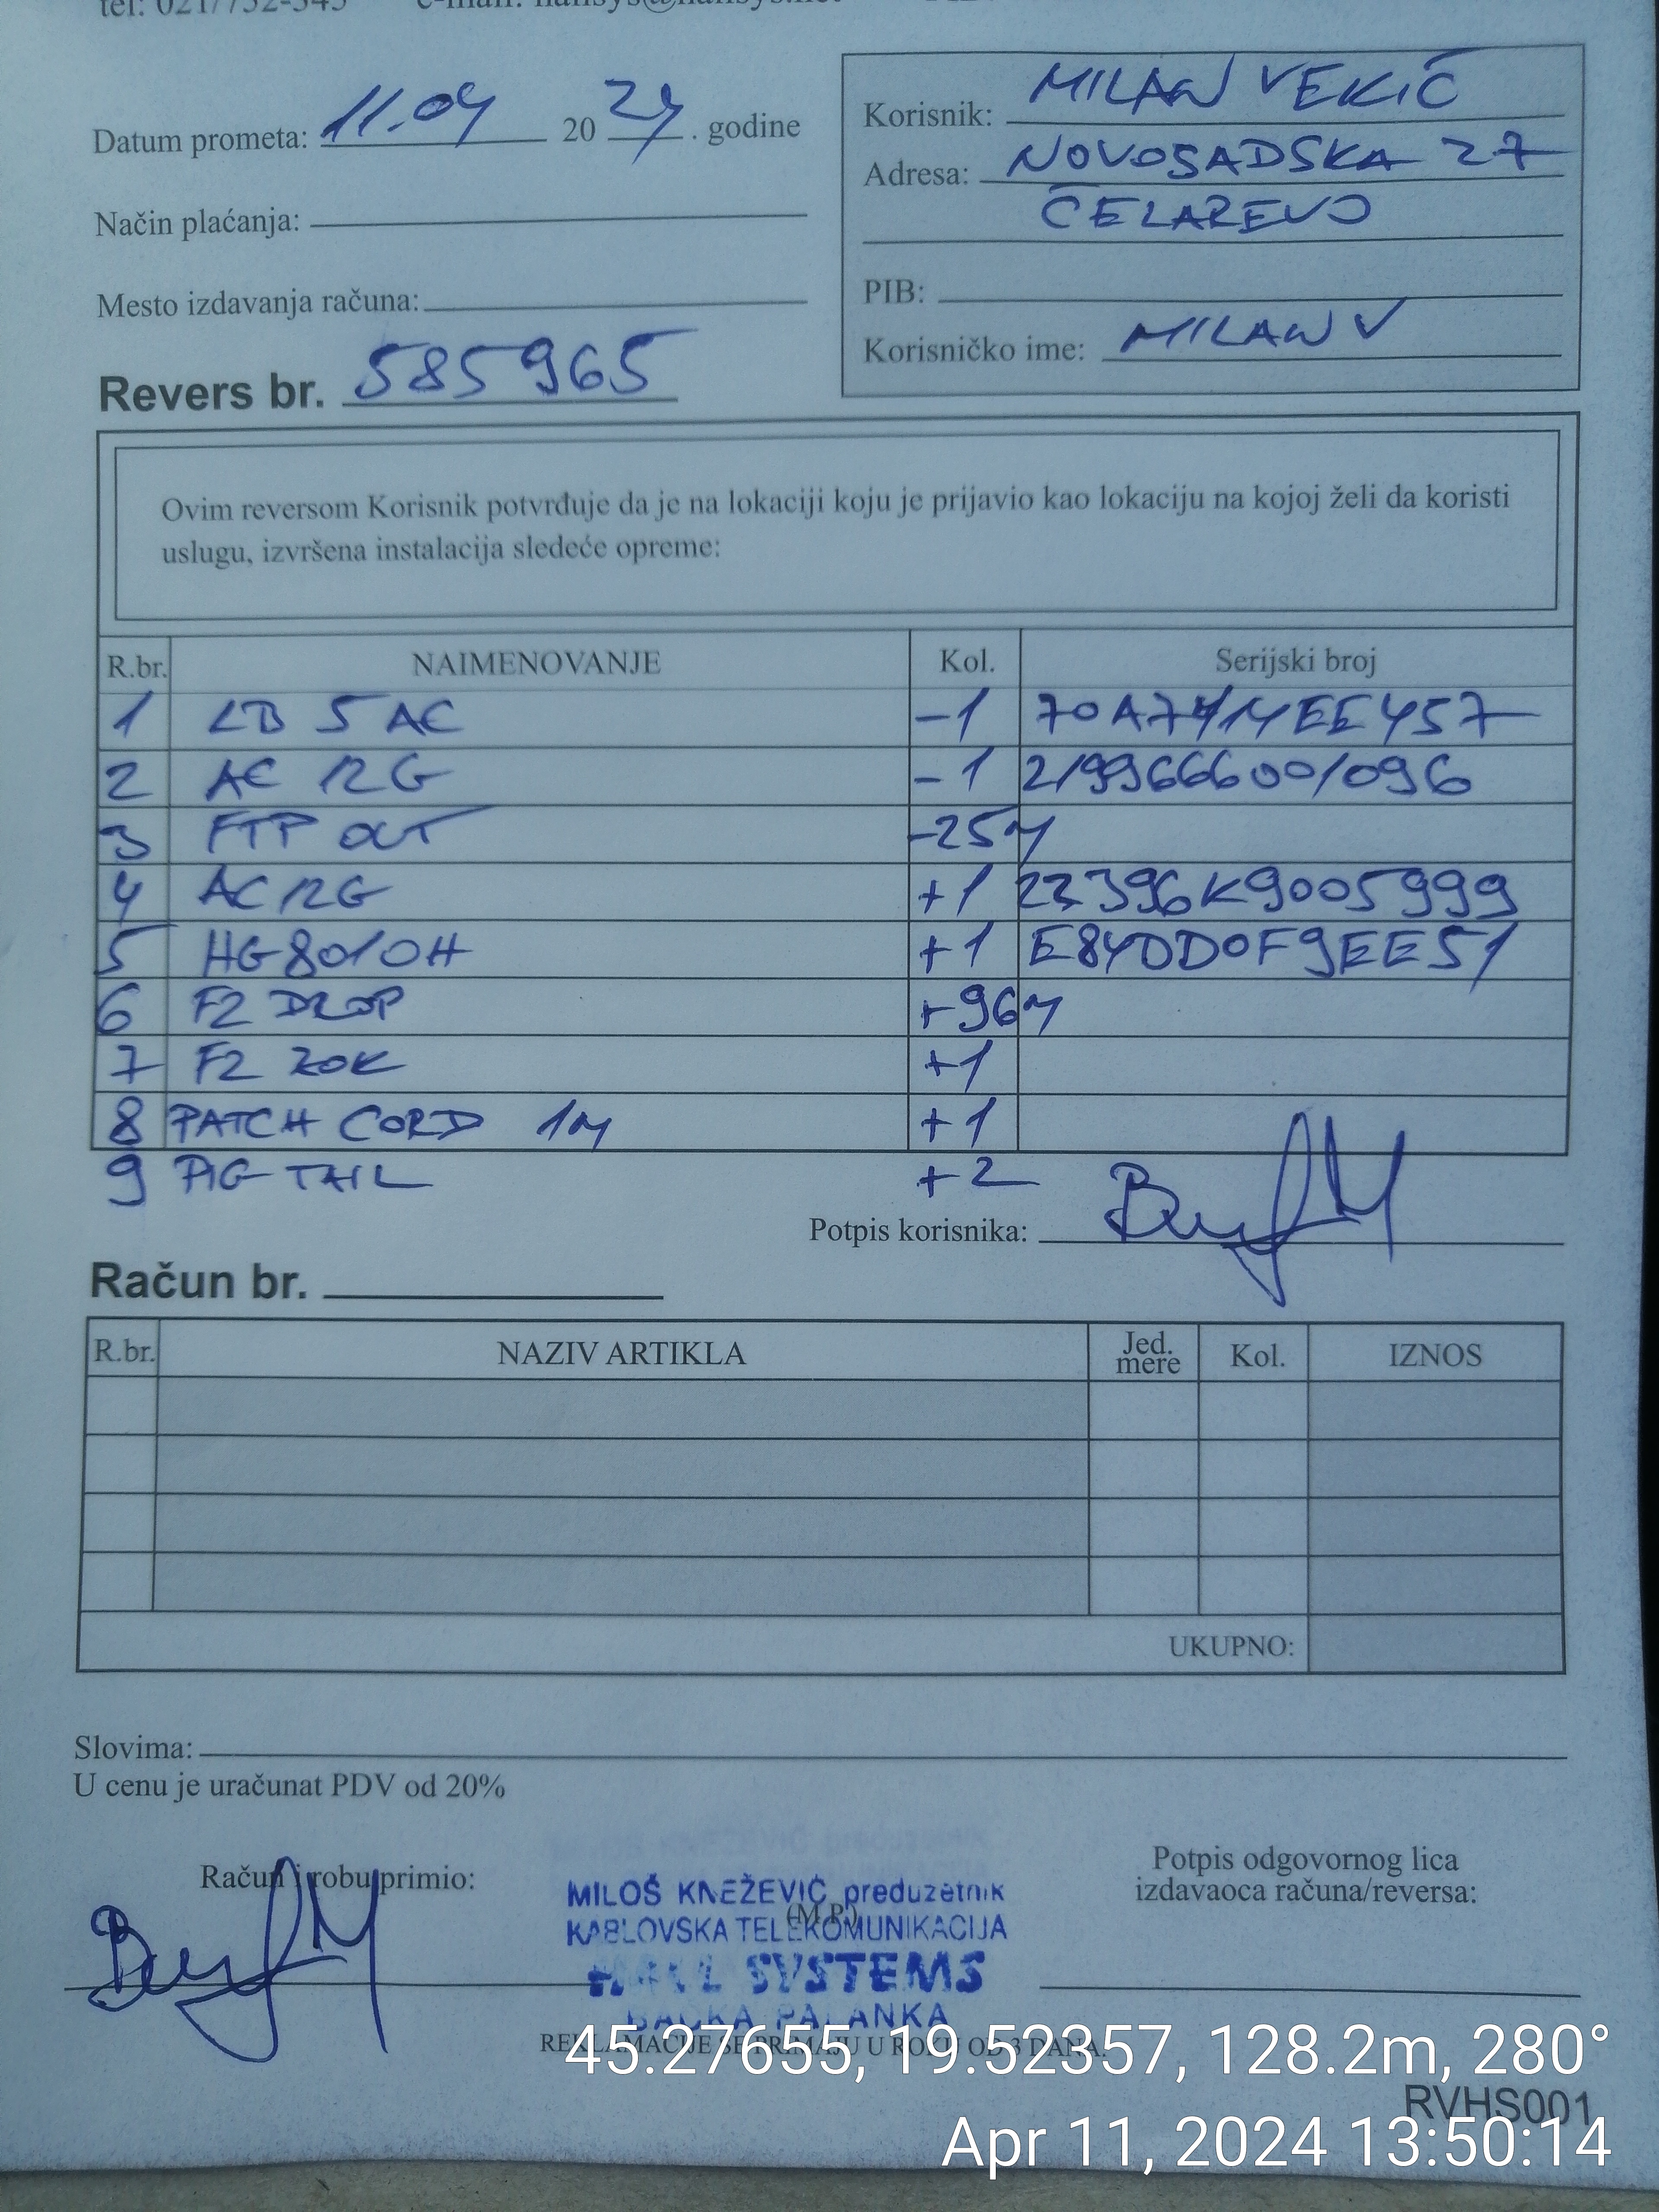 tel: 021/752-545 e-mail: hallsys@hallsys.net
Datum prometa: 11.04 20 24. godine
Korisnik: MILAN VEKIĆ
Adresa: NOVOSADSKA 27
ČELAREVO
Način plaćanja:
Mesto izdavanja računa:
PIB:
Korisničko ime: MILAN V
Revers br. 585965
Ovim reversom Korisnik potvrđuje da je na lokaciji koju je prijavio kao lokaciju na kojoj želi da koristi
uslugu, izvršena instalacija sledeće opreme:
R.br. NAIMENOVANJE Kol. Serijski broj
1 LB 5 AC -1
2 AC 12G -1 2199366600/096
3 FTP OUT -25m
4 AC 12G +1 22396K9005999
5 HG8010H +1 E84DD0F9EE51
6 F2 DROP +96m
7 F2 ZOK +1
8 PATCH CORD 1m +1
9 PIG TAIL +2
Potpis korisnika:
Račun br.
R.br. NAZIV ARTIKLA Jed. mere Kol. IZNOS
UKUPNO:
Slovima:
U cenu je uračunat PDV od 20%
Račun i robu primio:
Potpis odgovornog lica
izdavaoca računa/reversa:
(M.P.)
MILOŠ KNEŽEVIĆ preduzetnik
KABLOVSKA TELEKOMUNIKACIJA
HALL SYSTEMS
BAČKA PALANKA
REKLAMACIJE SE PRIMAJU U ROKU OD 3 DANA.
45.27655, 19.52357, 128.2m, 280°
RVHS001
Apr 11, 2024 13:50:14